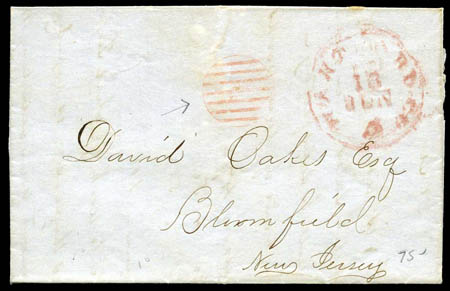 18
JUN
David Oakes Esq
Bloomfield
New Jersey
75